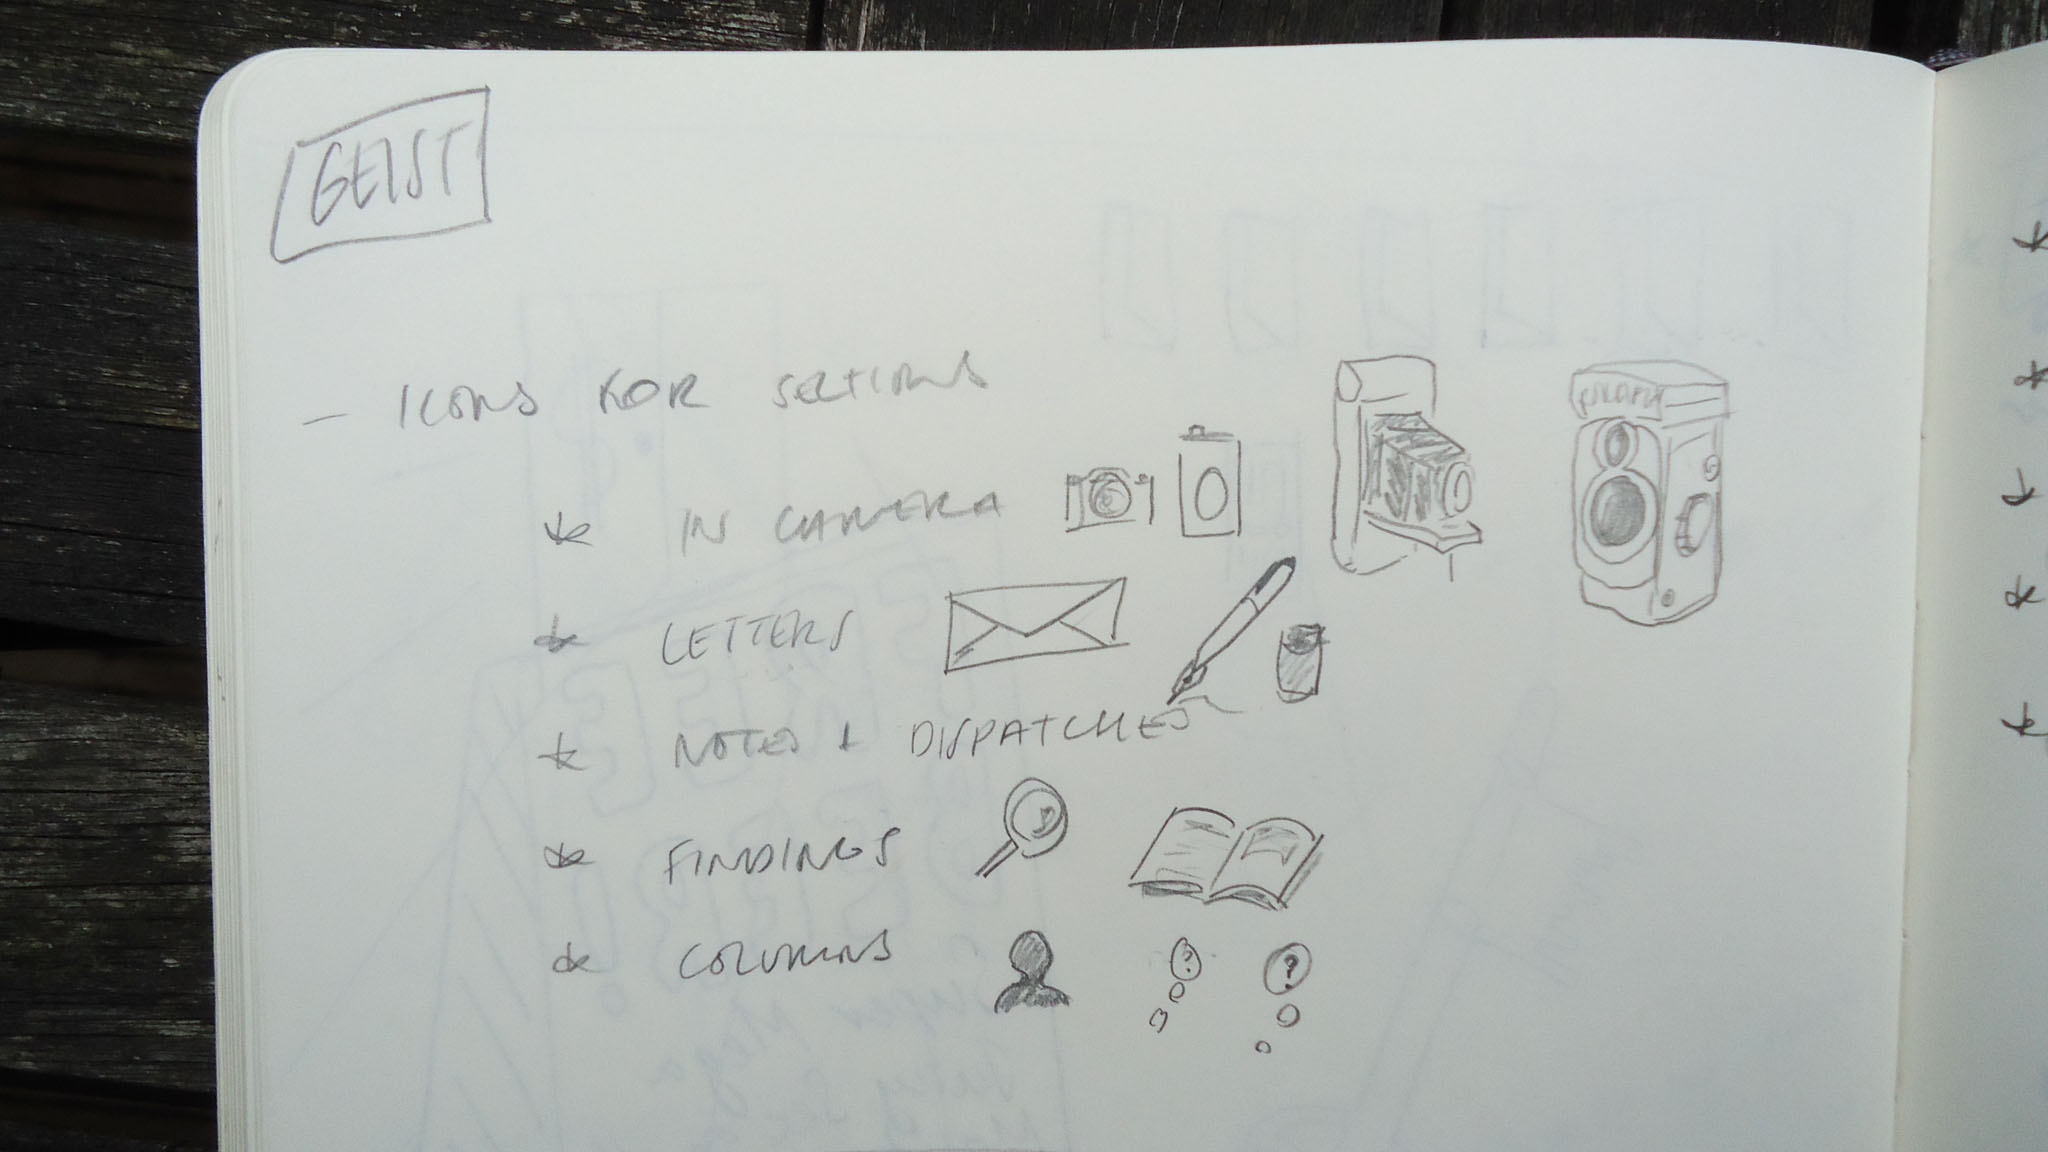 GEIST
- ICONS FOR SECTIONS
* IN CAMERA
* LETTERS
* NOTES + DISPATCHES
* FINDINGS
* COLUMNS
?
?